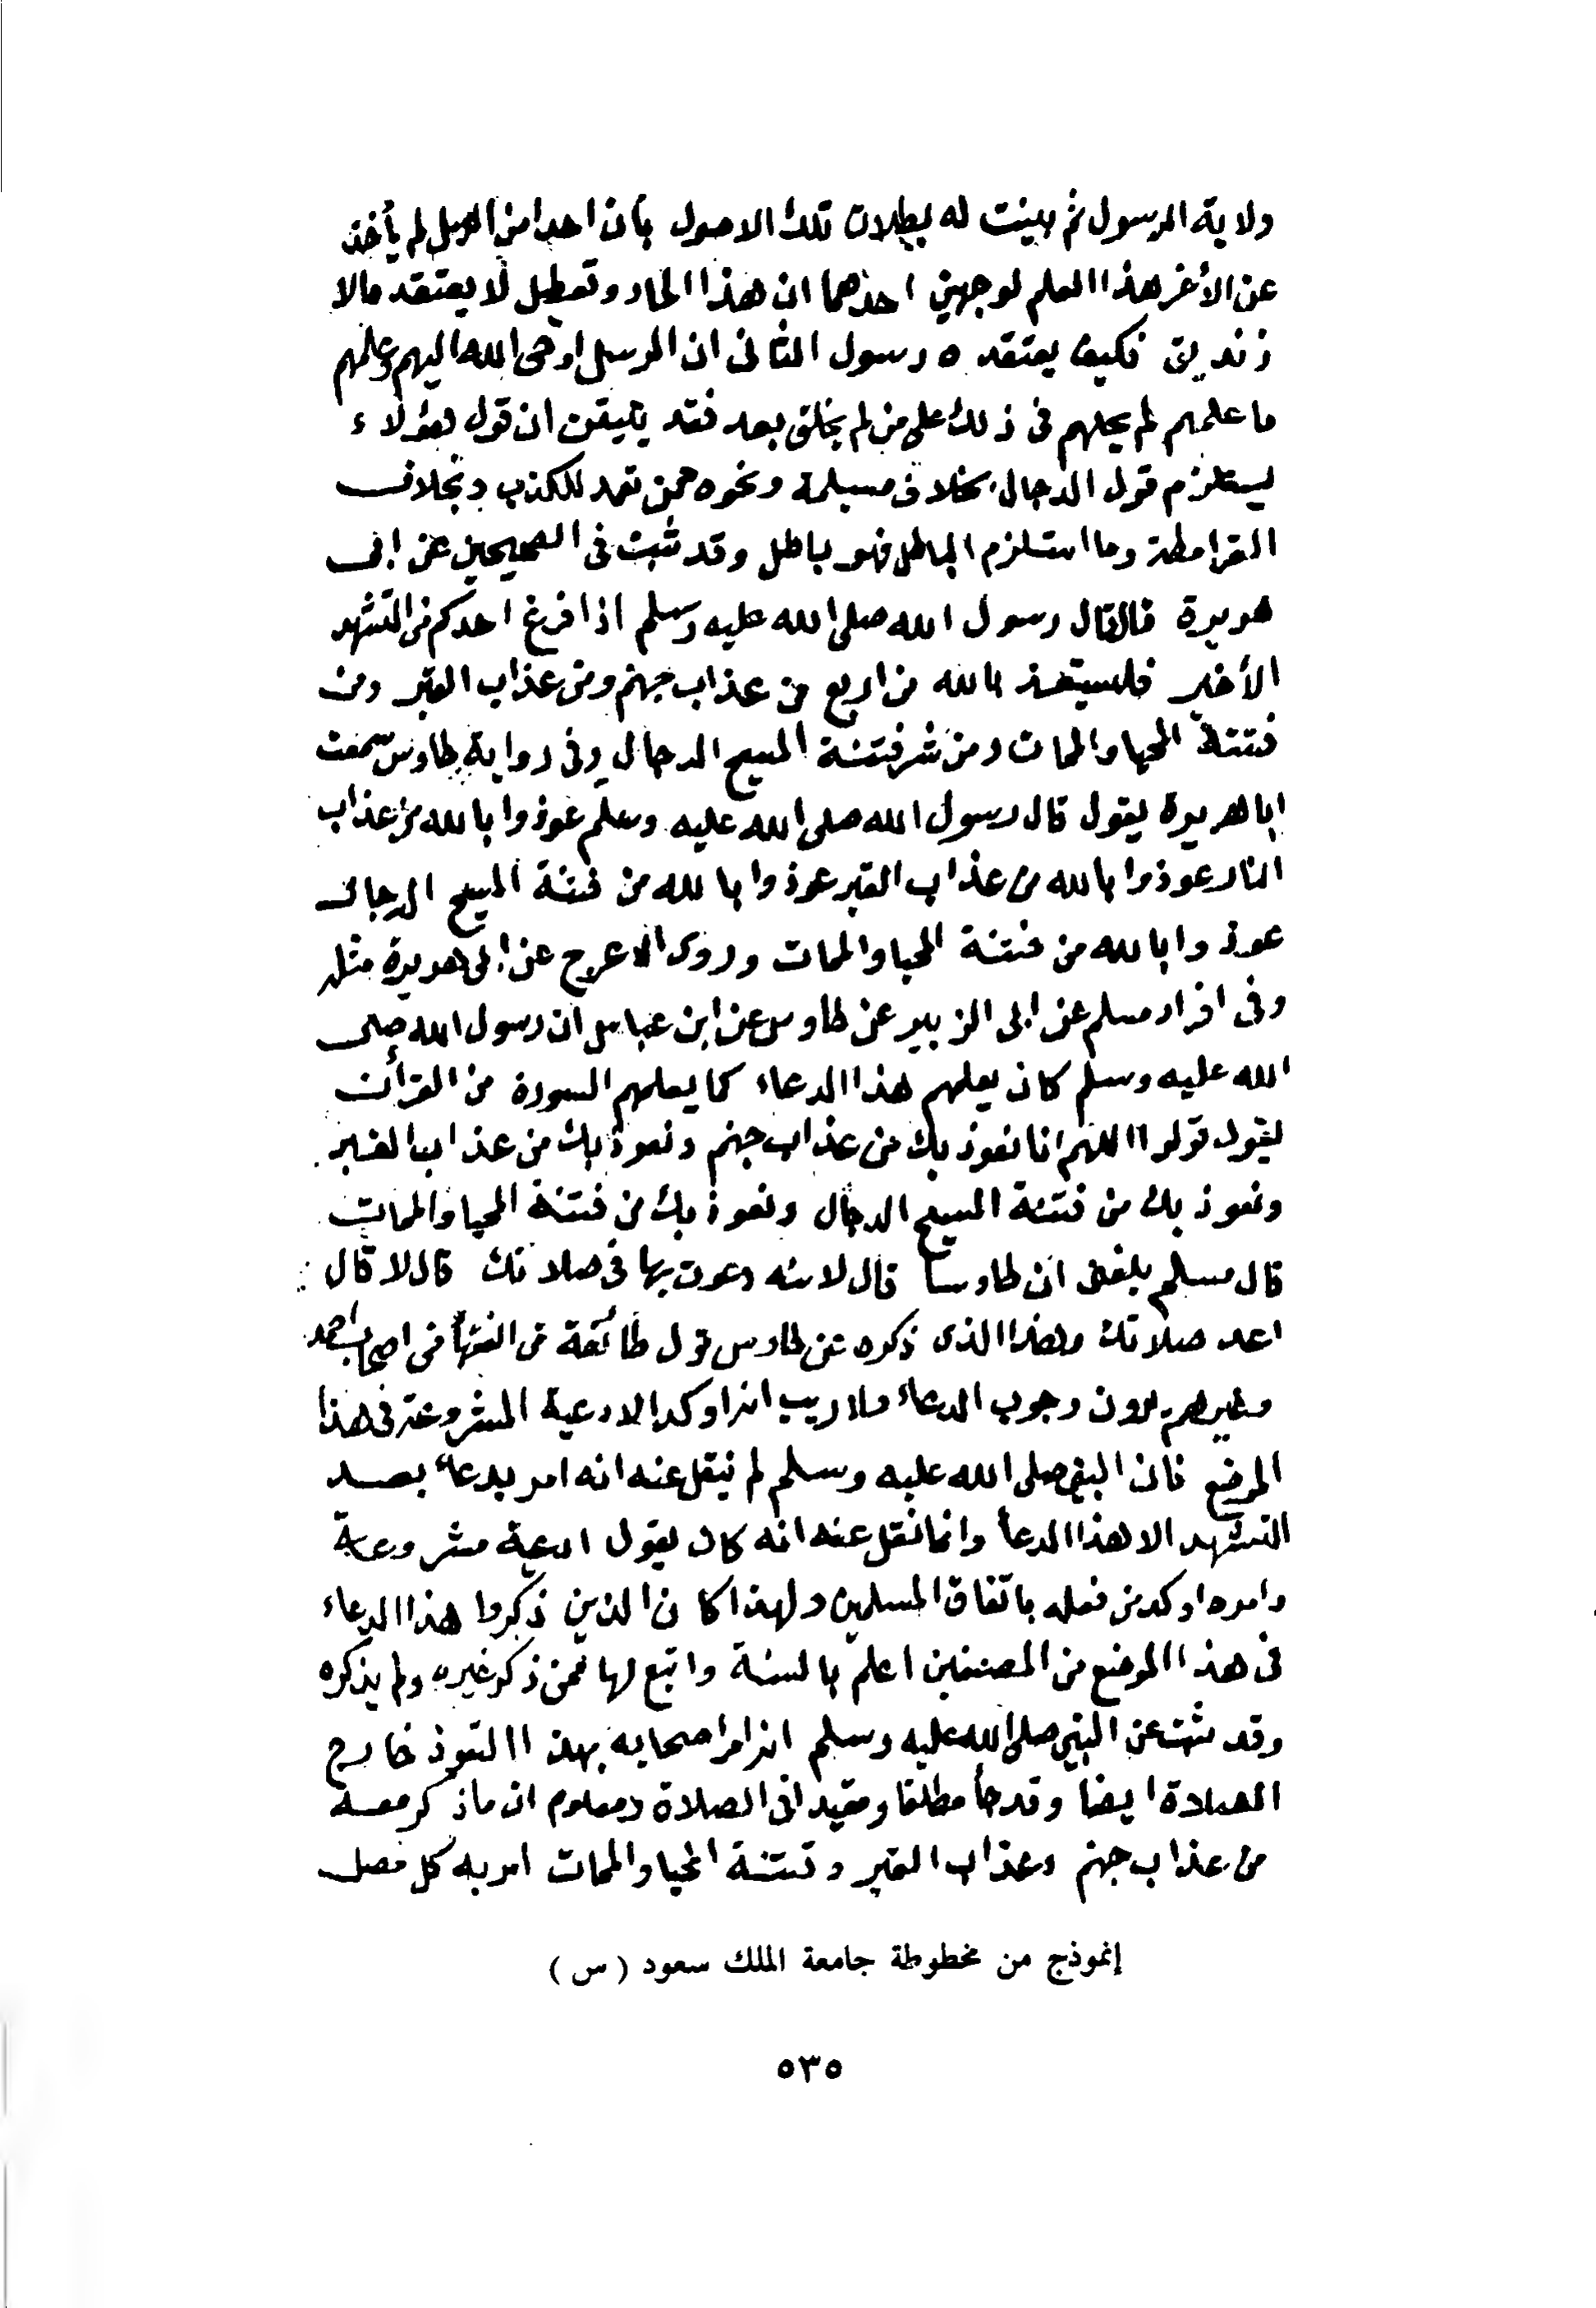 ولاية الرسول ثم بينت له بطلان تلك الاصول بأن احدا من الرسل لم يأخذ
عن الأخر هذا العلم لوجهين احدهما ان هذا الحاد وتعطيل لا يعتقده الا
زنديق فكيف يعتقده رسول الثانى ان الرسل اوحى الله اليهم وعلمهم
ما علمهم لم يحلهم فى ذلك على من لم يخلق بعد فقد يتيقن ان قول هؤلاء
يستلزم قول الدجال بخلاف مسيلمة ونحوه ممن تعمد للكذب وبخلاف
القرامطة وما استلزم الباطل فهو باطل وقد ثبت فى الصحيحين عن ابى
هريرة قال قال رسول الله صلى الله عليه وسلم اذا فرغ احدكم من التشهد
الأخير فليستعذ بالله من اربع من عذاب جهنم ومن عذاب القبر ومن
فتنة المحيا والممات ومن شر فتنة المسيح الدجال وفى رواية طاوس سمعت
ابا هريرة يقول قال رسول الله صلى الله عليه وسلم عوذوا بالله من عذاب
النار عوذوا بالله من عذاب القبر عوذوا بالله من فتنة المسيح الدجال
عوذوا بالله من فتنة المحيا والممات وروى الاعرج عن ابى هريرة مثله
وفى افراد مسلم عن ابى الزبير عن طاوس عن ابن عباس ان رسول الله صلى
الله عليه وسلم كان يعلمهم هذا الدعاء كما يعلمهم السورة من القرأن
يقول قولوا اللهم انا نعوذ بك من عذاب جهنم ونعوذ بك من عذاب القبر
ونعوذ بك من فتنة المسيح الدجال ونعوذ بك من فتنة المحيا والممات
قال مسلم بلغنى ان طاوسا قال لابنه دعوت بها فى صلاتك قال لا قال
اعد صلاتك وهذا الذى ذكره عن طاوس قول طائفة من الفقهأ من اصحاب احمد
وغيرهم يرون وجوب الدعاء ولا ريب انه اوكد الادعية المشروعة فى هذا
الموضع فان النبى صلى الله عليه وسلم لم ينقل عنه انه امر بدعاء بعد
التشهد الا هذا الدعأ وانما نقل عنه انه كان يقول ادعية مشروعة
وامره اوكد من فعله باتفاق المسلمين ولهذا كان الذين ذكروا هذا الدعاء
فى هذا الموضع من المصنفين اعلم بالسنة واتبع لها ممن ذكر غيره ولم يذكره
وقد ثبت عن النبى صلى الله عليه وسلم انه امر اصحابه بهذا التعوذ خارج
الصلاة ايضا وقد جأ مطلقا ومقيدا فى الصلاة ومعلوم ان ما ذكر معه
من عذاب جهنم وعذاب القبر وفتنة المحيا والممات امر به كل مصل
إنموذج من مخطوطة جامعة الملك سعود (س)
٥٣٥